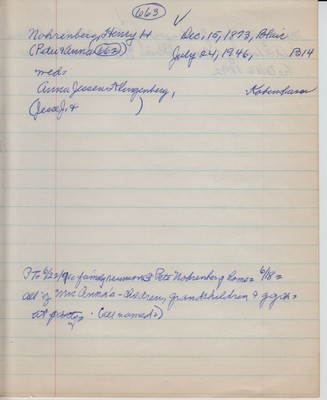 663 ✓
Nohrenberg, Henry H Dec, 15, 1873, Blair
(Peter & Anna 663) July 24, 1946, B14
med:
Anna Jessen Klingenberg,
(Jess J. & )
6/22/ family reunion @ Pete Nohrenberg home = 6/18 =
all of Mrs Anna's - children, grandchildren & ggch =
at party. (all named)